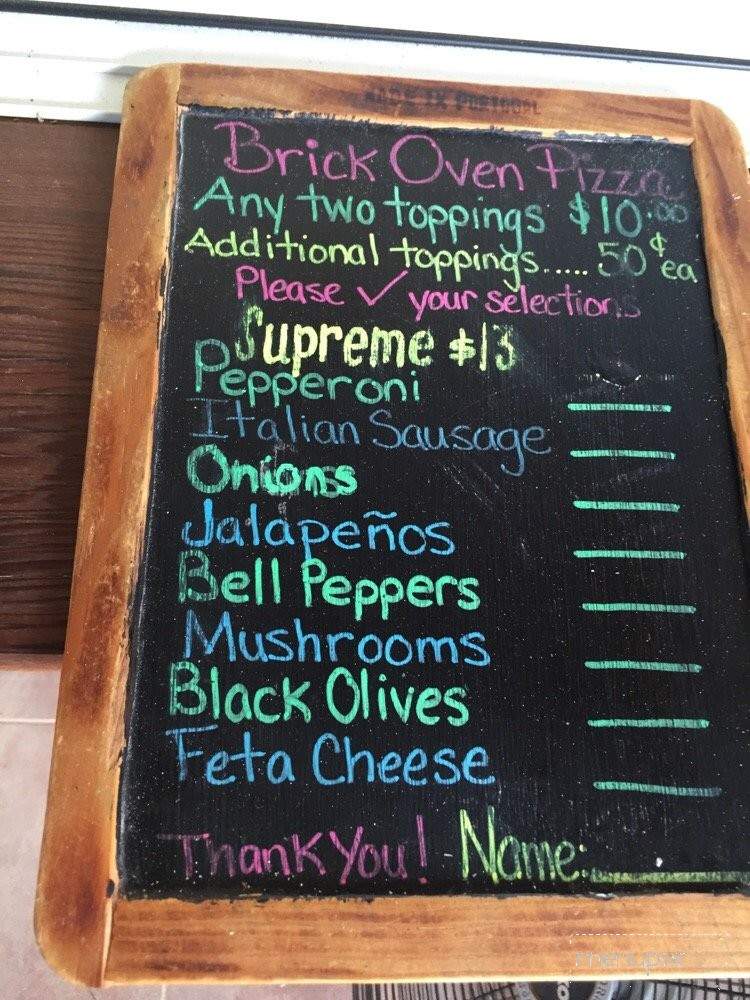 MADE IN PORTUGAL
Brick Oven Pizza
Any two toppings $10.00
Additional toppings..... 50¢ ea
Please ✓ your selections
Supreme $13
Pepperoni
Italian Sausage
Onions
Jalapeños
Bell Peppers
Mushrooms
Black Olives
Feta Cheese
Thank You! Name: